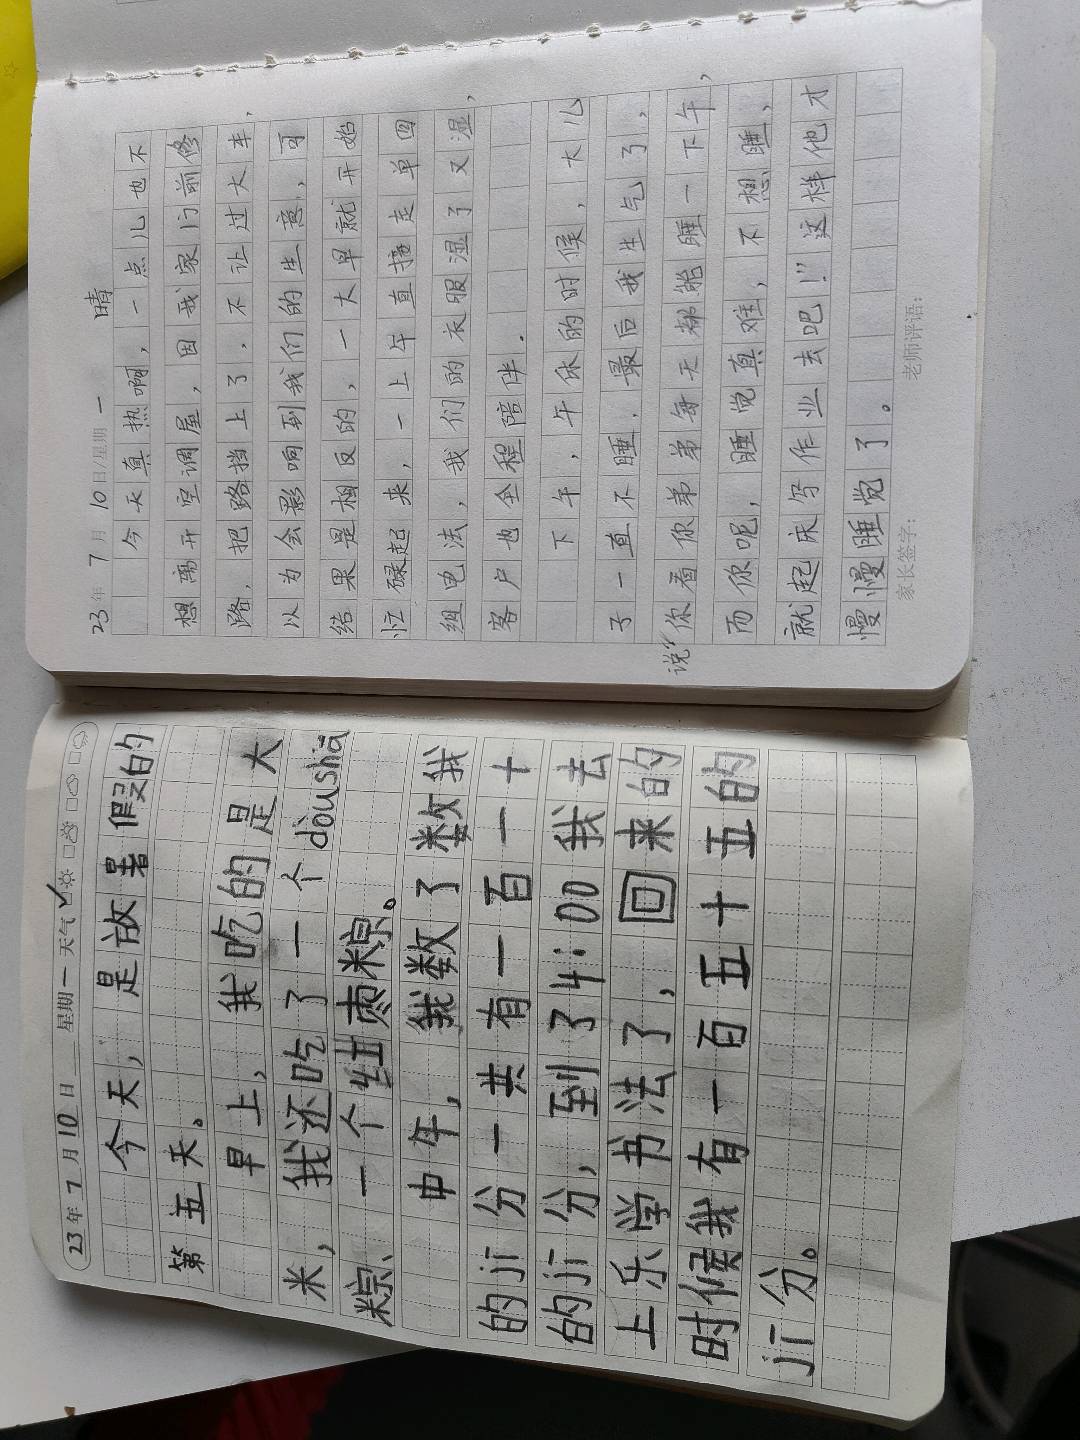 23年7月10日 星期一 晴
今天真热啊，一点儿也不
想离开空调屋，因我家门前修
路，把路挡上了，不让过大车，
以为会影响到我们的生意，可
结果是相反的，一大早就开始
忙碌起来，一上午直播走单回
组电法，我们的衣服湿了又湿，
客户也全程陪伴．
下午，午休的时候，大儿
子一直不睡．最后我生气了，
说“你看你弟弟每天都能睡一下午，
而你呢，睡觉真难，不想睡，
就起床写作业去吧！”这样他才
慢慢睡觉了。
家长签字： 老师评语：
23年7月10日 星期一 天气
今天，是放暑假的
第五天。
早上，我吃的是大
米，我还吃了一个doushia
粽、一个蛙枣粽。
中年，我数了数我
的ji分一共有一百一十
的ji分，到了4:00我去
上乐学书法了，回来的
时候我有一百五十五的
ji分。